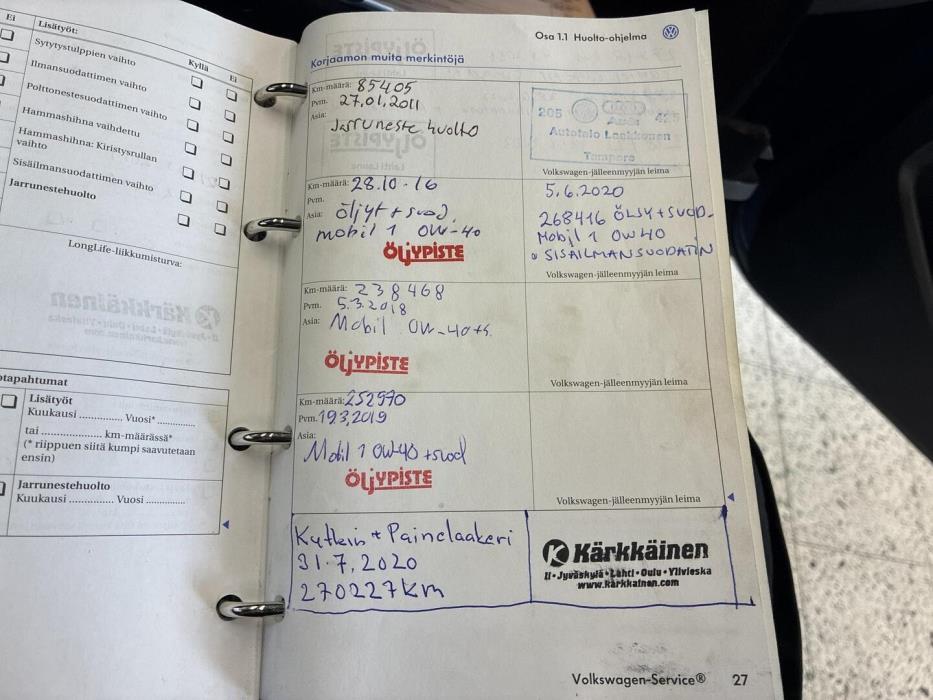 Ei
Lisätyöt:
Kyllä
Ei
Sytytystulppien vaihto
Ilmansuodattimen vaihto
Polttonestesuodattimen vaihto
Hammashihna vaihdettu
Hammashihna: Kiristysrullan
vaihto
Sisäilmansuodattimen vaihto
Jarrunestehuolto
LongLife-liikkumisturva:
Kärkkäinen
otapahtumat
Lisätyöt
Kuukausi .............. Vuosi* ..............
tai .................... km-määrässä*
(* riippuen siitä kumpi saavutetaan
ensin)
Jarrunestehuolto
Kuukausi .............. Vuosi ..............
Osa 1.1 Huolto-ohjelma
Korjaamon muita merkintöjä
Km-määrä: 85405
Pvm. 27.01.2011
Asia:
Jarruneste huolto
205
Audi
Autotalo Laakkonen
Tampere
Volkswagen-jälleenmyyjän leima
Km-määrä: 28.10.16
Pvm.
Asia: Öljyt + suod.
mobil 1 0W-40
ÖLjYPISTE
5.6.2020
268416 ÖLJY+SUOD.
Mobil 1 0W40
SISÄILMANSUODATIN
Volkswagen-jälleenmyyjän leima
Km-määrä: 238468
Pvm. 5.3.2018
Asia: Mobil 0W-40+s.
ÖLjYPISTE
Volkswagen-jälleenmyyjän leima
Km-määrä: 252970
Pvm. 19.3.2019
Asia:
Mobil 1 0W-40 +suod
ÖLjYPISTE
Volkswagen-jälleenmyyjän leima
Kytkin + Painelaakeri
31.7.2020
270227km
K Kärkkäinen
Ii • Jyväskylä • Lahti • Oulu • Ylivieska
www.karkkainen.com
Volkswagen-Service® 27